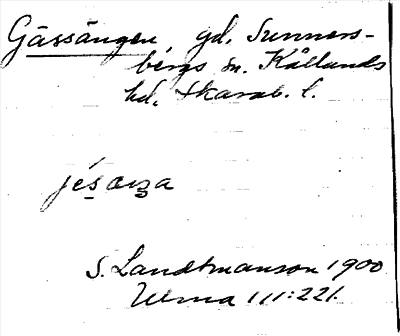 Gässängen gd. Sunners-
bergs sn. Kållands
hd. Skarab. l.
S. Landtmanson 1900
Ulma 111:221.